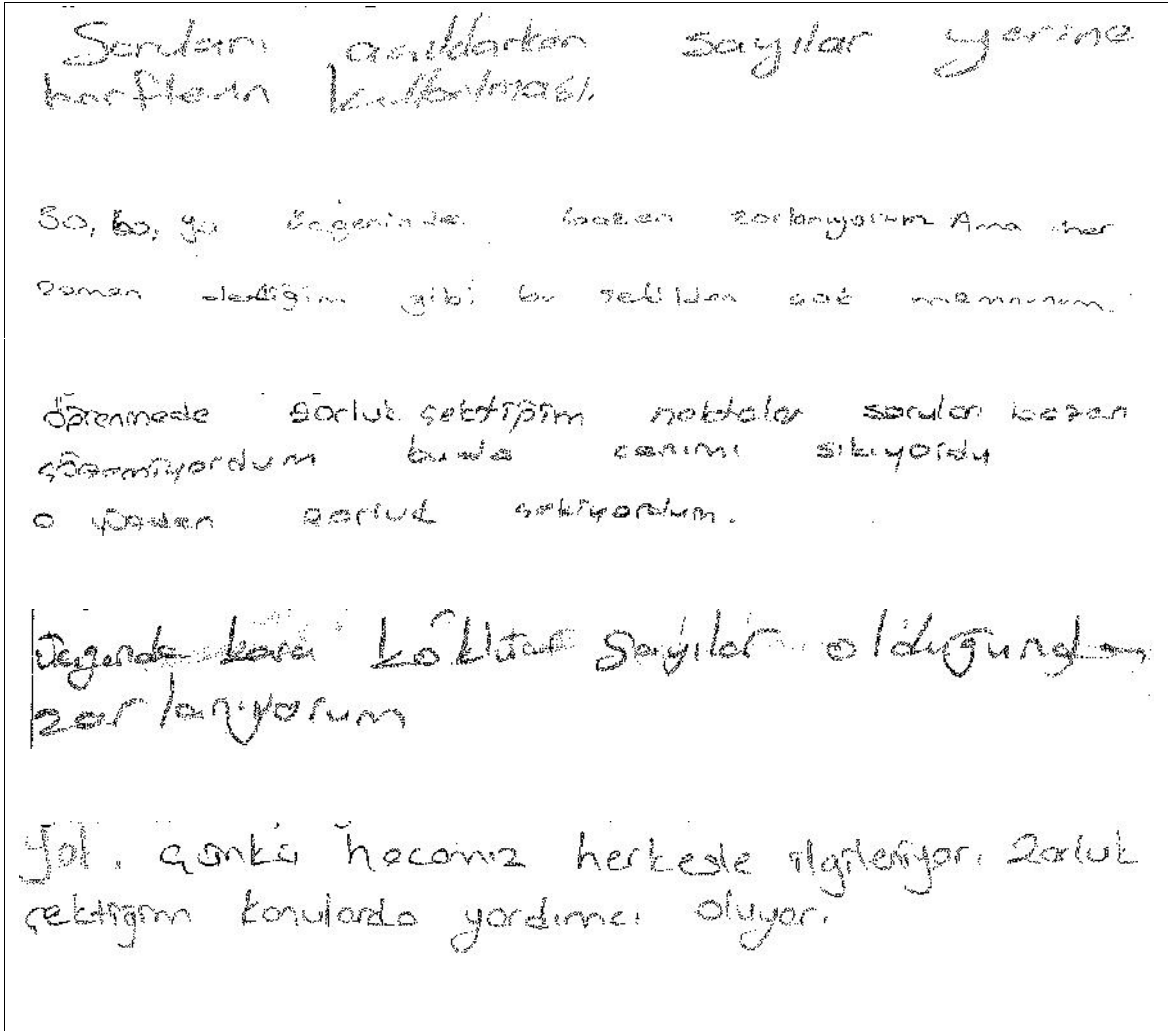 Soruları açıklarken sayılar yerine
harflerin kullanılması.
50, 60, 90 üçgeninde bazen zorlanıyorum Ama her
zaman dediğim gibi bu şekilden çok memnunum.
öğrenmede zorluk çektiğim noktalar soruları bazen
çözemiyordum buda canımı sıkıyordu
o yüzden zorluk çekiyordum.
Üçgende kareköklü sayılar olduğunda
zorlanıyorum
Yok. Çünkü hocamız herkesle ilgileniyor. Zorluk
çektiğim konularda yardımcı oluyor.